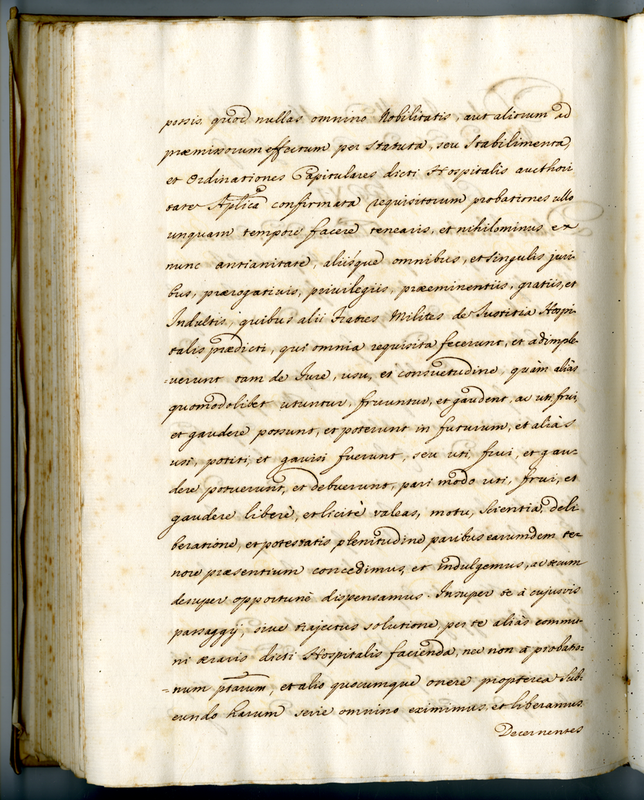 possis quod nullas omnino Nobilitatis, aut alitrum ad
præmissorum effectum per Statuta, seu Stabilimenta,
et Ordinationes Capitulares dicti Hospitalis aucthori-
tate Aplicâ confirmata requisitorum probationes ullo
unquam tempore facere tenearis, et nihilominus ex
nunc antianitate, aliisque omnibus, et singulis juri-
bus, prærogativis, privilegiis, præeminentiis, gratiis, et
Indultis, quibus alii Fratres Milites de Iustitia Hospi-
talis prædicti, qui omnia requisita fecerunt, et adimple-
-verunt tam de Iure, usu, et consuetudine, quàm aliàs
quomodolibet utuntur, fruuntur, et gaudent, ac uti, frui,
et gaudere possunt, et poterunt in futurum, et aliàs
usi, potiti, et gavisi fuerunt, seu uti frui, et gau-
dere potuerunt, et debuerunt, pari modo uti, frui, et
gaudere liberè, et licitè valeas, motu, scientia, deli-
beratione, et potestatis plenitudine paribus earumdem te-
nore præsentium concedimus, et indulgemus, ac tecum
desuper opportunè dispensamus. Insuper te à cujusvis
passaggÿ, sive trajectus solutione, per te aliàs commu-
ni ærario dicti Hospitalis facienda, nec non à probatio-
-num ptarum, et alio quocumque onere propterea sub-
eundo harum serie omnino eximimus, et liberamus.
Decernentes